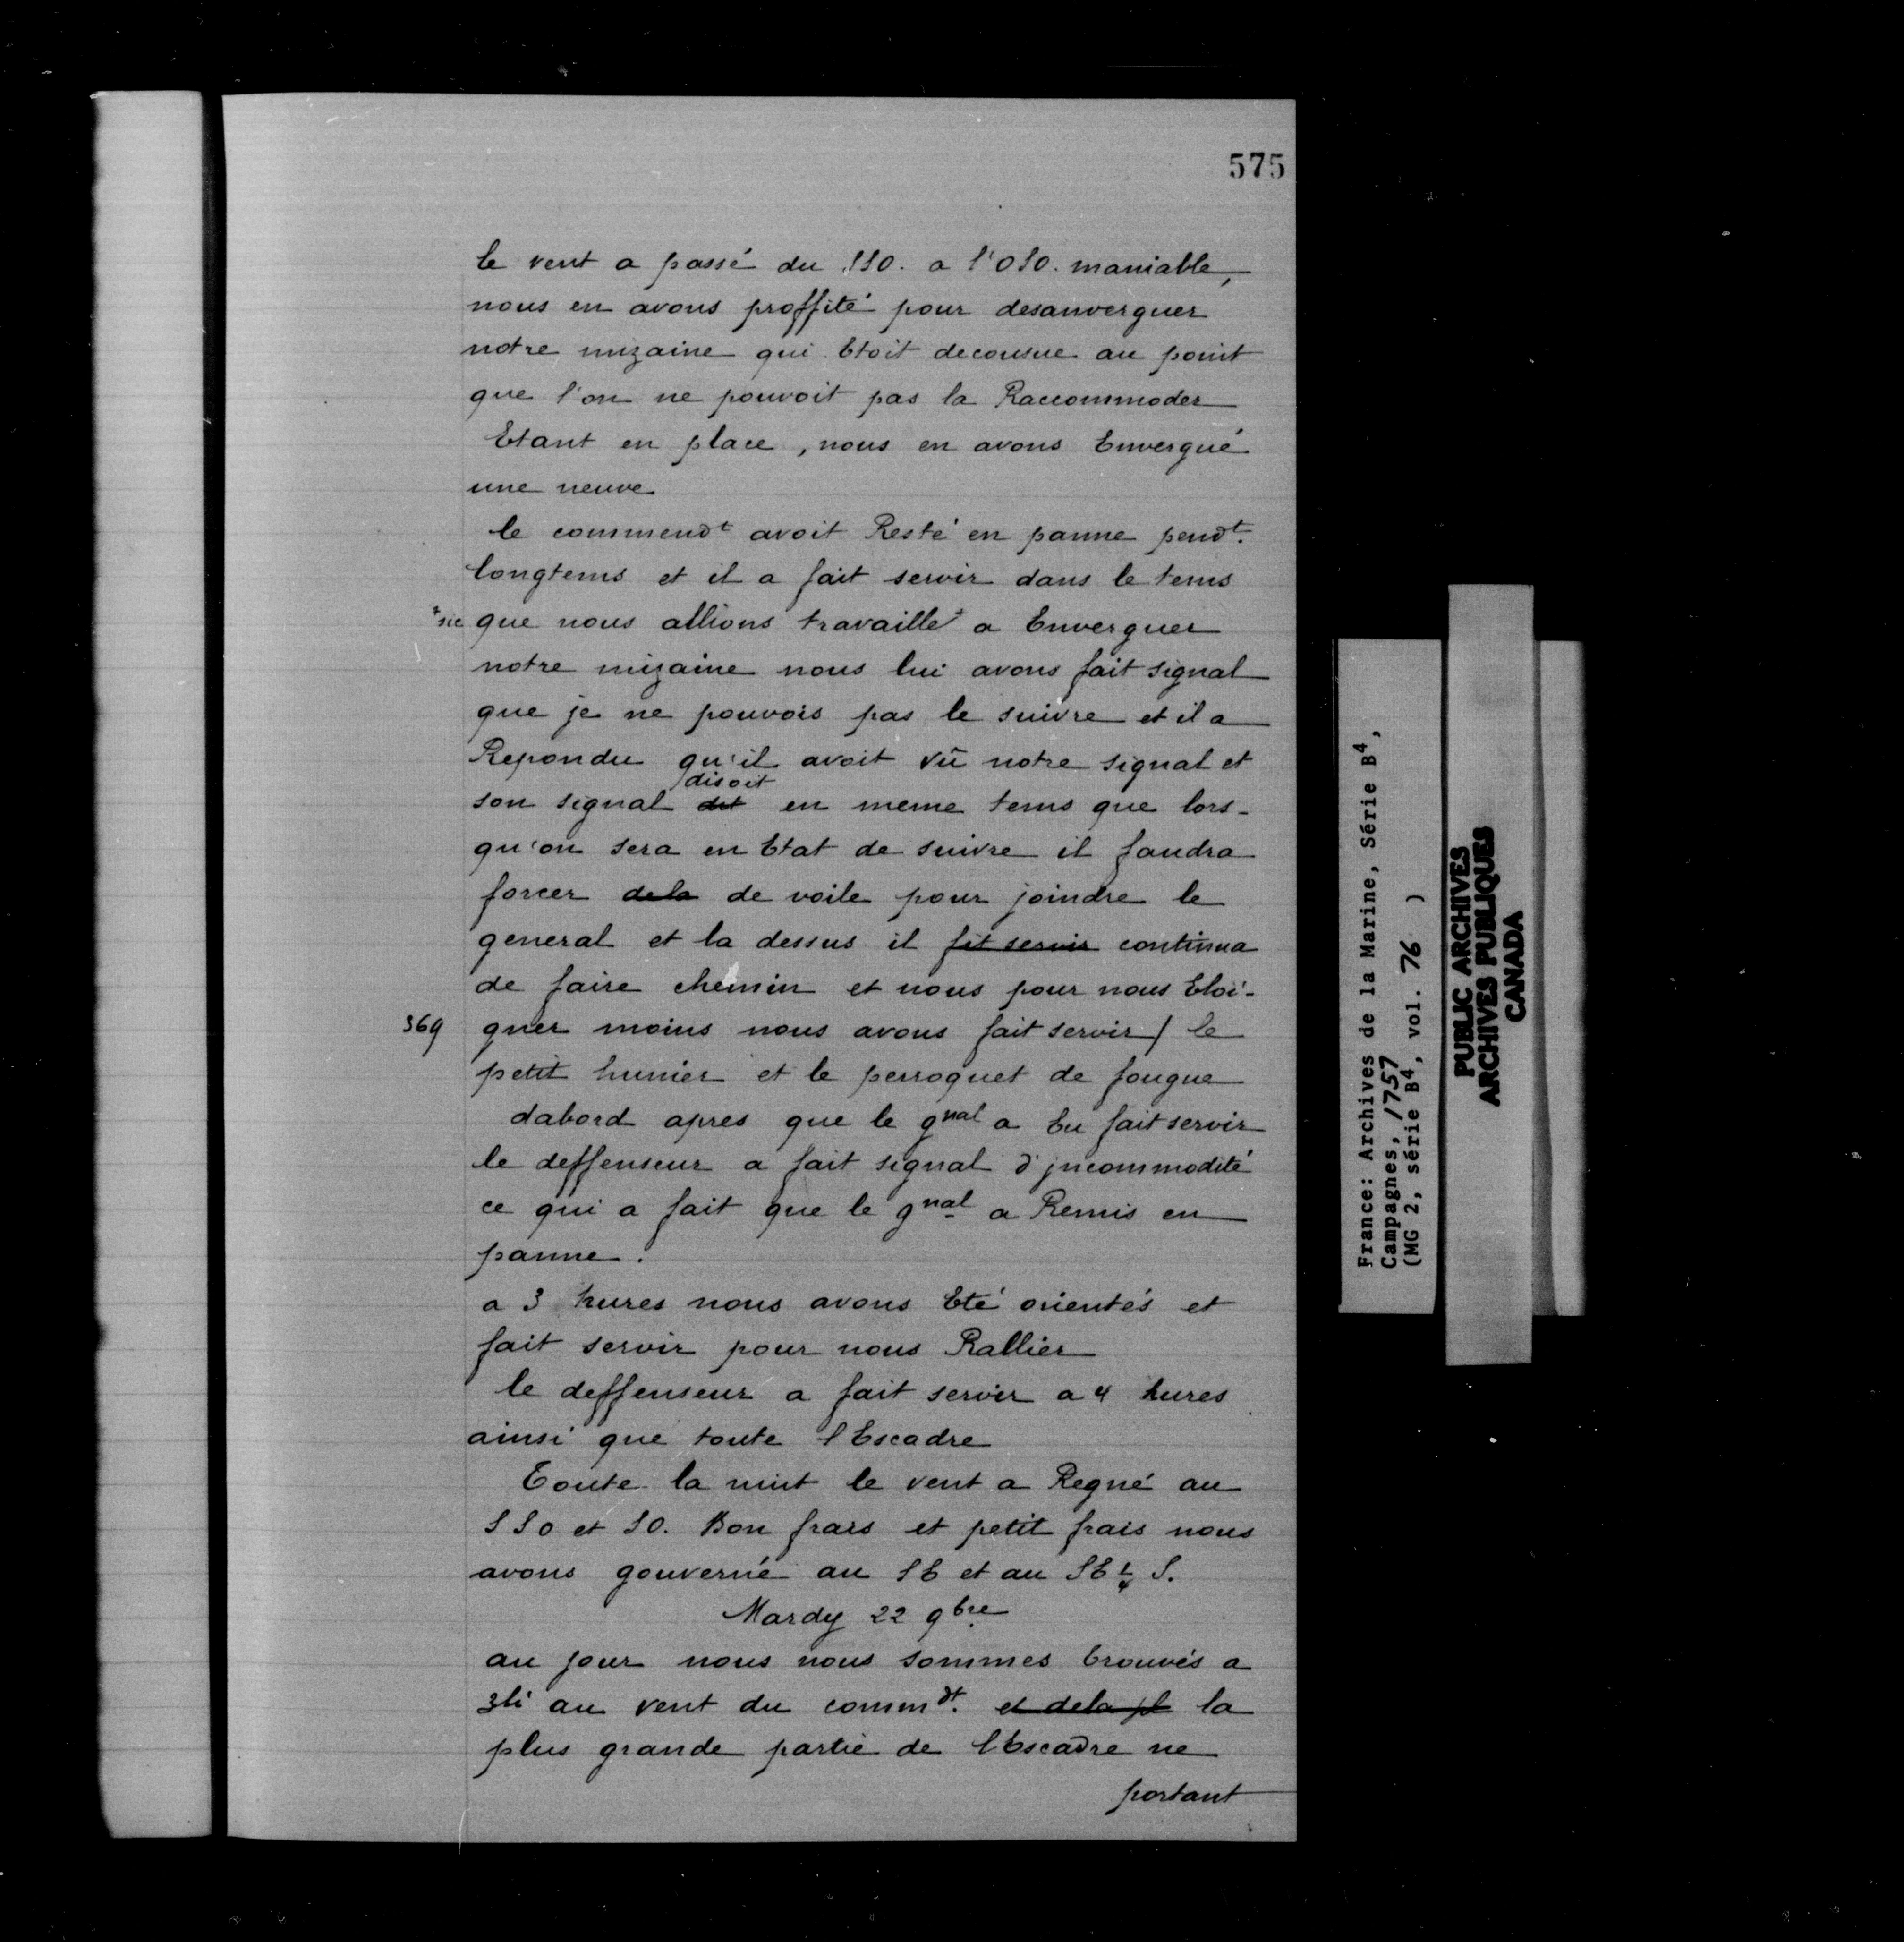 575
le vent a passé du SSO. a l'OSO. maniable,
nous en avons proffité pour desanverguer
notre mizaine qui Etoit decousue au point
que l'on ne pouvoit pas la Raccommoder
Etant en place, nous en avons Envergué
une neuve
le commendt avoit Resté en panne pendt.
longtems et il a fait servir dans le tems
+sic que nous allions travaillé+ a Enverguer
notre mizaine nous lui avons fait signal
que je ne pouvois pas le suivre et il a
Repondu qu'il avoit vû notre signal et
disoit
son signal dit en meme tems que lors-
qu'on sera en Etat de suivre il faudra
forcer dela de voile pour joindre le
general et la dessus il fit servir continua
de faire chemin et nous pour nous Eloi-
369 gner moins nous avons fait servir / le
petit hunier et le perroquet de fougue
dabord apres que le gnal a Eu fait servir
le deffenseur a fait signal d'jncommodité
ce qui a fait que le gnal a Remis en
panne.
a 3 hures nous avons Eté orientés et
fait servir pour nous Rallier
le deffenseur a fait servir a 4 hures
ainsi que toute l'Escadre
Toute la nuit le vent a Regné au
SSO et SO. Bon frais et petit frais nous
avons gouverné au SE et au SE 1/4 S.
Mardy 22 9bre
au jour nous nous sommes trouvés a
3li au vent du commdt. et dela pl la
plus grande partie de l'Escadre ne
portant
France: Archives de la Marine, Série B4,
Campagnes, 1757
(MG 2, série B4, vol. 76 )
PUBLIC ARCHIVES
ARCHIVES PUBLIQUES
CANADA